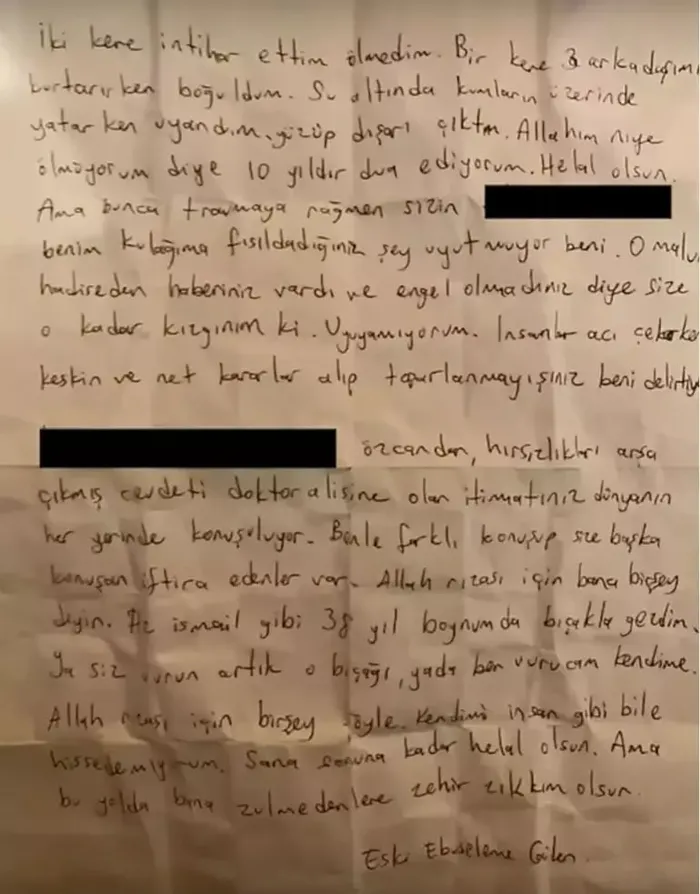 İki kere intihar ettim ölmedim. Bir kere 3 arkadaşımı
kurtarırken boğuldum. Su altında kumların üzerinde
yatarken uyandım, yüzüp dışarı çıktım. Allahım niye
ölmüyorum diye 10 yıldır dua ediyorum. Helal olsun.
Ama bunca travmaya rağmen sizin
benim kulağıma fısıldadığınız şey uyutmuyor beni. O malu
hadiseden haberiniz vardı ve engel olmadınız diye size
o kadar kızgınım ki. Uyuyamıyorum. İnsanlar acı çekerke
keskin ve net kararlar alıp toparlanmayışınız beni delirtiy
özcandan, hırsızlıkları arşa
çıkmış cevdeti doktor alisine olan itimatınız dünyanın
her yerinde konuşuluyor. Benle farklı konuşup size başka
konuşan iftira edenler var. Allah rızası için bana birşey
deyin. Hz ismail gibi 38 yıl boynumda bıçakla gezdim.
Ya siz vurun artık o bıçağı, yada ben vurucam kendime.
Allah rızası için birşey söyle. Kendimi insan gibi bile
hissedemiyorum. Sana sonuna kadar helal olsun. Ama
bu yolda bana zulmedenlere zehir zıkkım olsun.
Eski Ebuseleme Gülen.